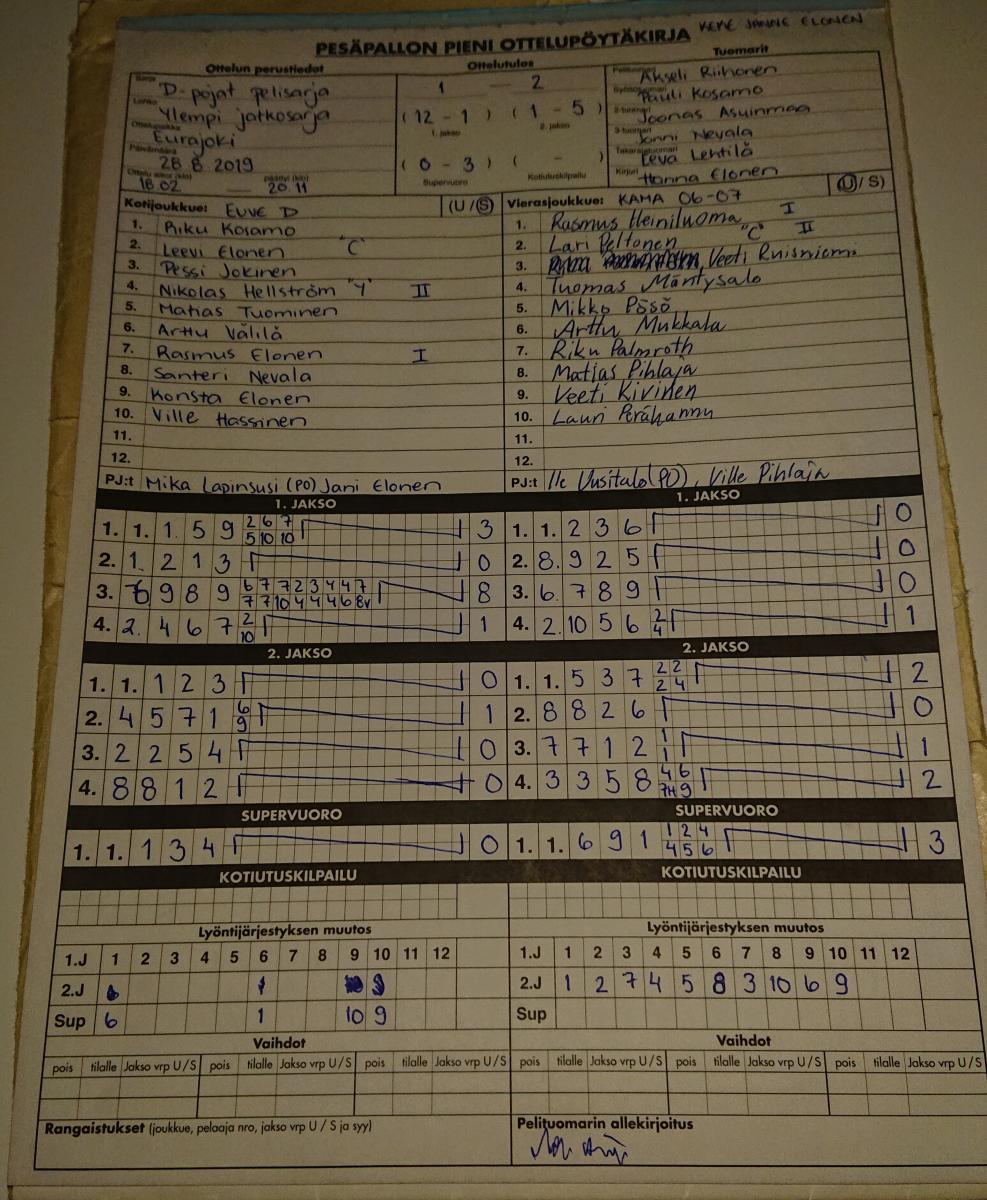 KEKE JANNE ELONEN
PESÄPALLON PIENI OTTELUPÖYTÄKIRJA
Ottelun perustiedot
Ottelutulos
Tuomarit
Sarja D-pojat pelisarja
Lohko Ylempi jatkosarja
Ottelupaikka Eurajoki
Päivämäärä 28.8.2019
Ottelu alkoi (klo) 18.02 — päättyi (klo) 20.11
1 — 2
(12 - 1) (1 - 5)
1. jakso 2. jakso
(0 - 3) ( - )
Supervuoro Kotiutuskilpailu
Pelituomari Akseli Riihonen
Syöttötuomari Pauli Kosamo
2-tuomari Joonas Asuinmaa
3-tuomari Jonni Nevala
Takarajatuomari Eeva Lehtilä
Kirjuri Hanna Elonen
Kotijoukkue: EUVE D (U/S)
1. Riku Kosamo
2. Leevi Elonen "C"
3. Pessi Jokinen
4. Nikolas Hellström "Y" II
5. Matias Tuominen
6. Arttu Välilä
7. Rasmus Elonen I
8. Santeri Nevala
9. Konsta Elonen
10. Ville Hassinen
11.
12.
PJ:t Mika Lapinsusi (PO) Jani Elonen
Vierasjoukkue: KAMA 06-07 (U/S)
1. Rasmus Heiniluoma I
2. Lari Peltonen "C" II
3. Veeti Ruisniemi
4. Tuomas Mäntysalo
5. Mikko Pösö
6. Arttu Mukkala
7. Riku Palmroth
8. Matias Pihlaja
9. Veeti Kivinen
10. Lauri Perähannu
11.
12.
PJ:t Ile Uusitalo (PO), Ville Pihlaja
1. JAKSO
1. 1. 1 5 9 2 6 7 3
5 10 10
2. 1. 2 1 3 0
3. 6 9 8 9 6 7 7 2 3 4 4 7 8
7 7 10 4 4 4 6 8v
4. 2. 4 6 7 2 1
10
1. JAKSO
1. 1. 2 3 6 0
2. 8. 9 2 5 0
3. 6. 7 8 9 0
4. 2. 10 5 6 2 1
4
2. JAKSO
1. 1. 1 2 3 0
2. 4 5 7 1 6 1
9
3. 2 2 5 4 0
4. 8 8 1 2 0
2. JAKSO
1. 1. 5 3 7 2 2 2
2 4
2. 8 8 2 6 0
3. 7 7 1 2 1 1
1
4. 3 3 5 8 4 6 2
7H 9
SUPERVUORO
1. 1. 1 3 4 0
SUPERVUORO
1. 1. 6 9 1 1 2 4 3
4 5 6
KOTIUTUSKILPAILU
KOTIUTUSKILPAILU
Lyöntijärjestyksen muutos
1.J 1 2 3 4 5 6 7 8 9 10 11 12
2.J
Sup 6 1 10 9
Lyöntijärjestyksen muutos
1.J 1 2 3 4 5 6 7 8 9 10 11 12
2.J 1 2 7 4 5 8 3 10 6 9
Sup
Vaihdot
pois tilalle Jakso vrp U/S pois tilalle Jakso vrp U/S pois tilalle Jakso vrp U/S
Vaihdot
pois tilalle Jakso vrp U/S pois tilalle Jakso vrp U/S pois tilalle Jakso vrp U/S
Rangaistukset (joukkue, pelaaja nro, jakso vrp U / S ja syy)
Pelituomarin allekirjoitus